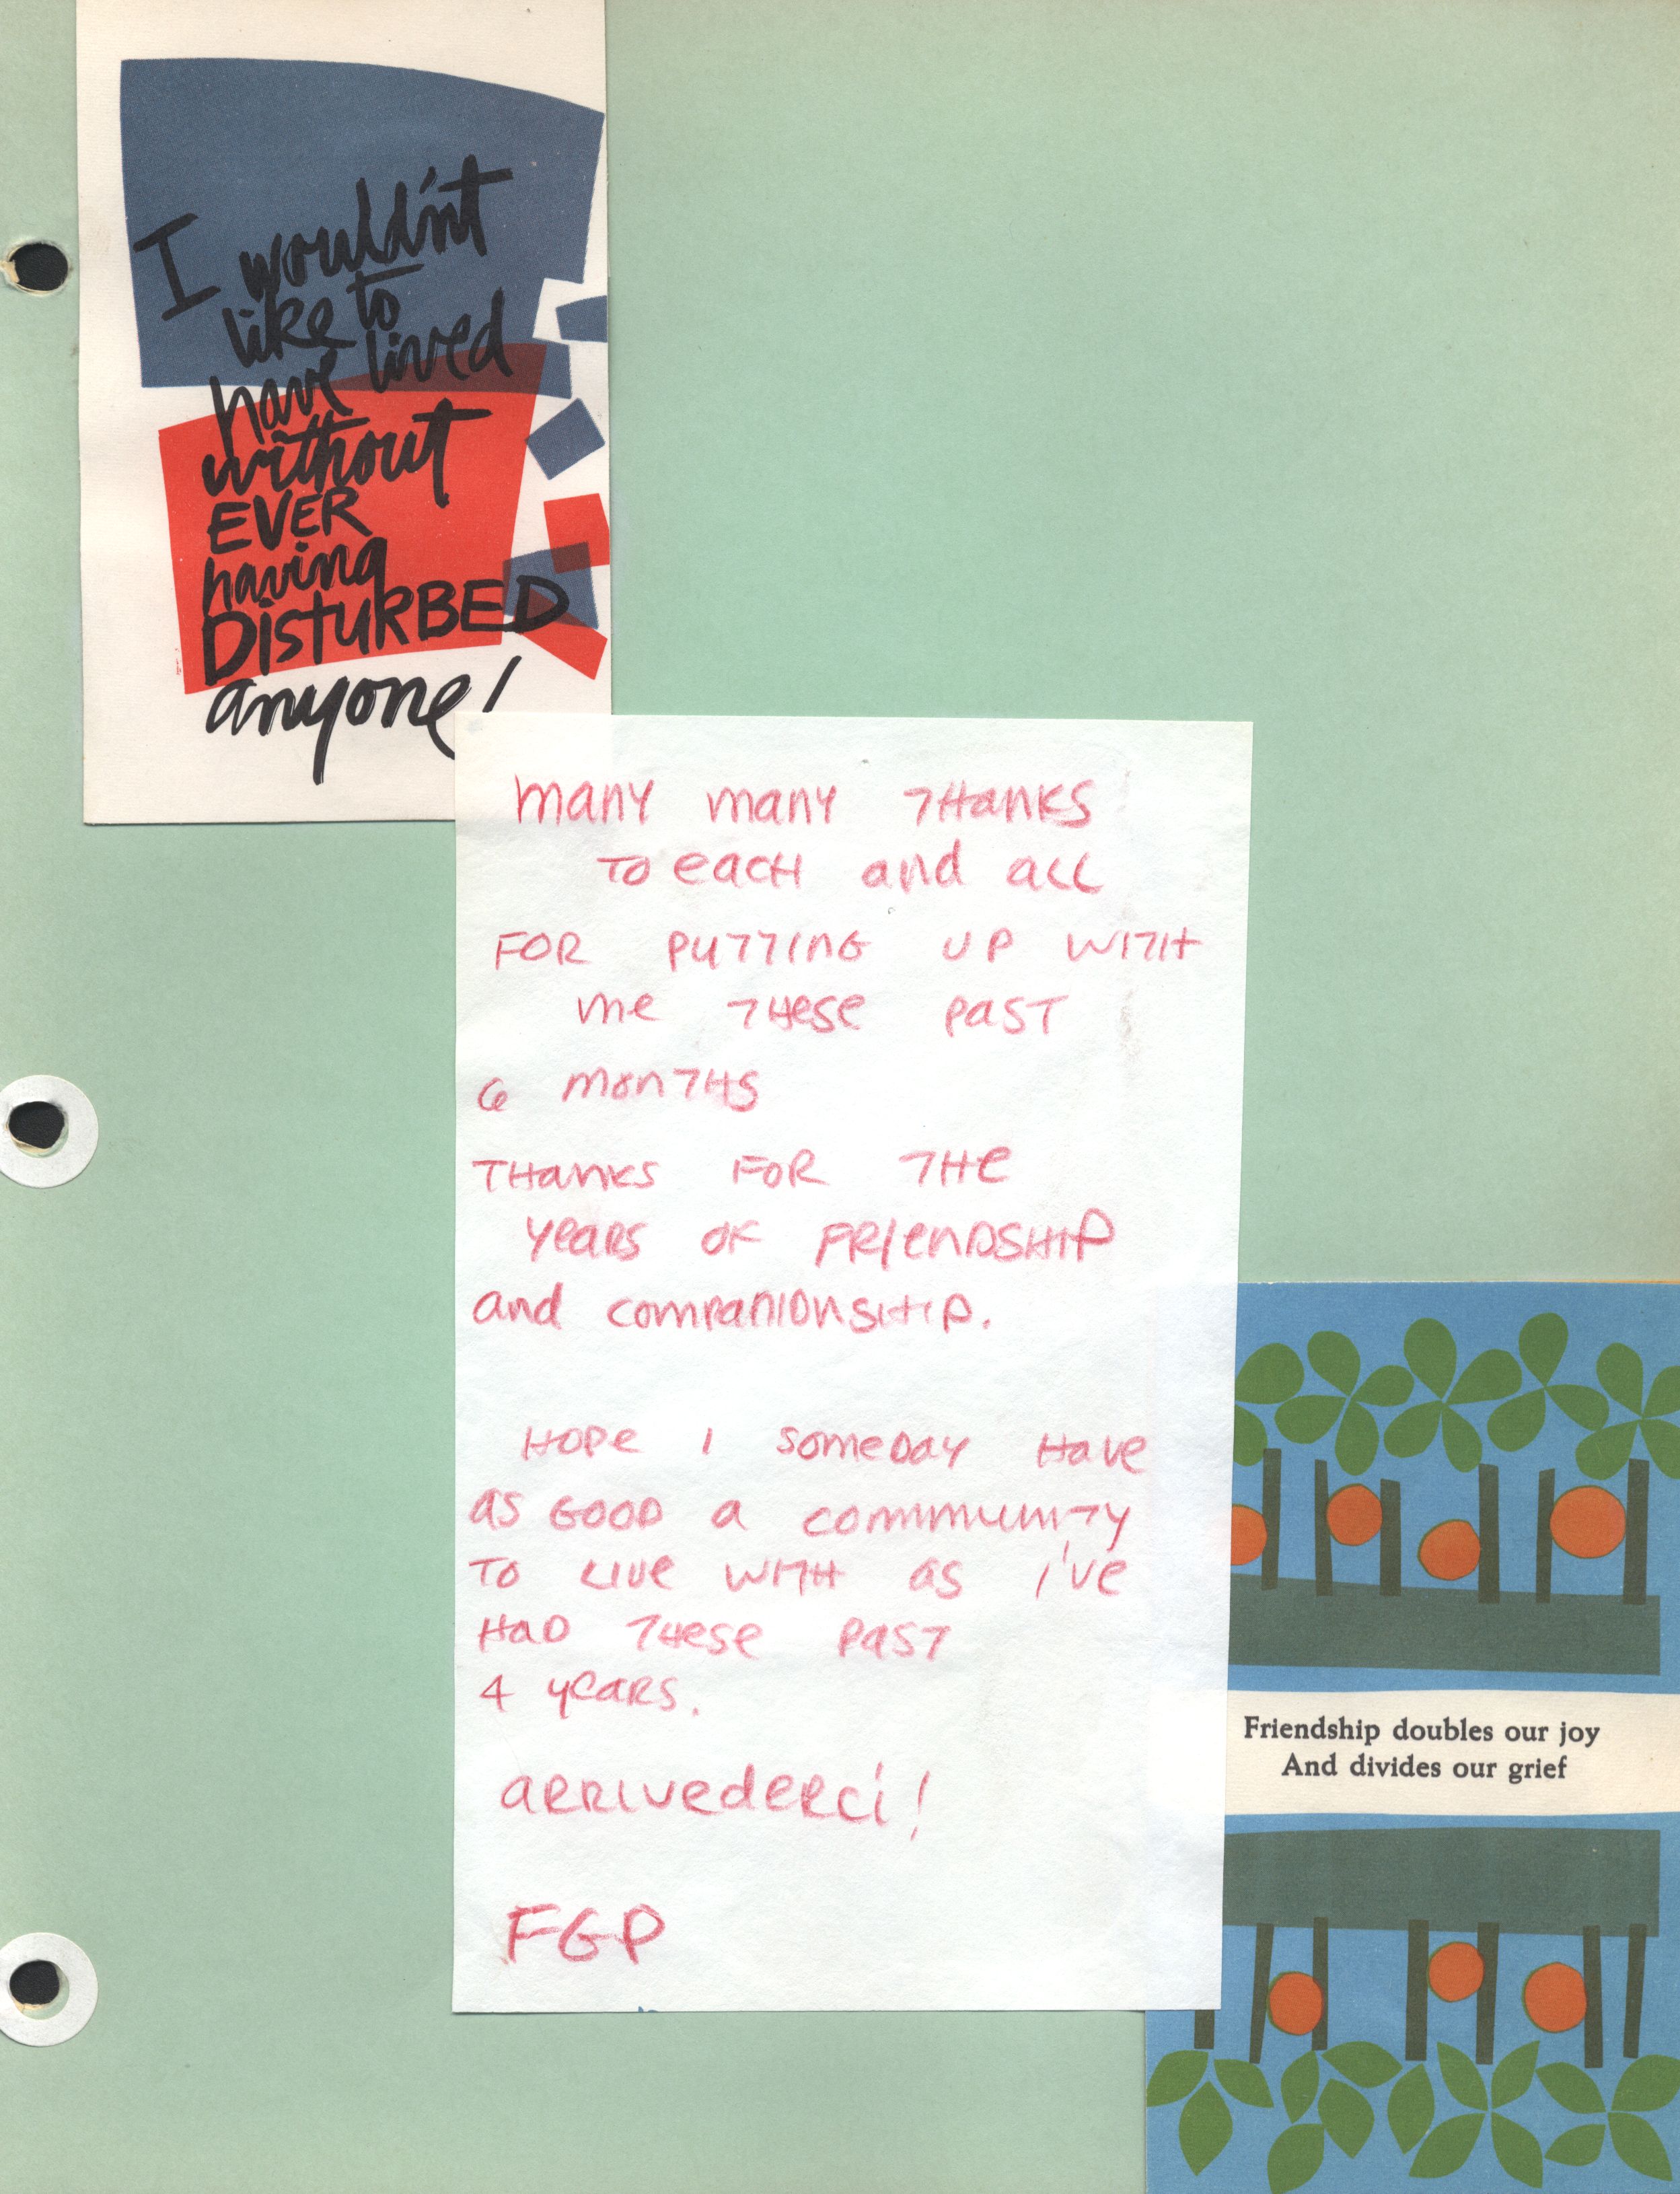 I wouldn't
like to
have lived
without
EVER
having
DisturBED
anyone!
many many THanks
TO eacH and all
FOR PUTTING UP WITH
me THese PasT
6 monTHs
THanks FOR THe
years OF FRIenDSHIP
and companionsHIP.
HOPe I someDay Have
as GOOD a commmuniTy
TO LIVe WITH as I've
HaD THese PasT
4 years.
aRRIVedeRci!
FGP
Friendship doubles our joy
And divides our grief